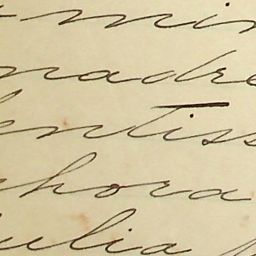 min
madre
entiss
nhora
ulia